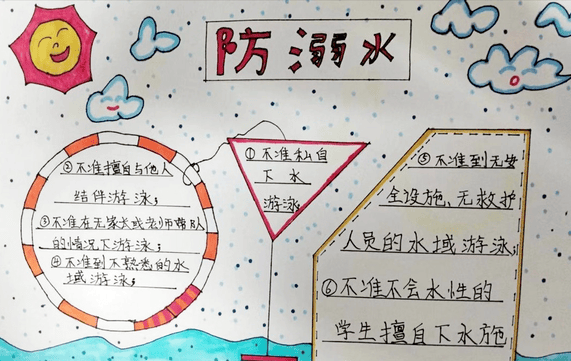 防溺水
①不准私自
下水
游泳;
②不准擅自与他人
结伴游泳;
③不准在无家长或老师带队
的情况下游泳;
④不准到不熟悉的水
域游泳;
⑤不准到无安
全设施、无救护
人员的水域游泳;
⑥不准不会水性的
学生擅自下水施